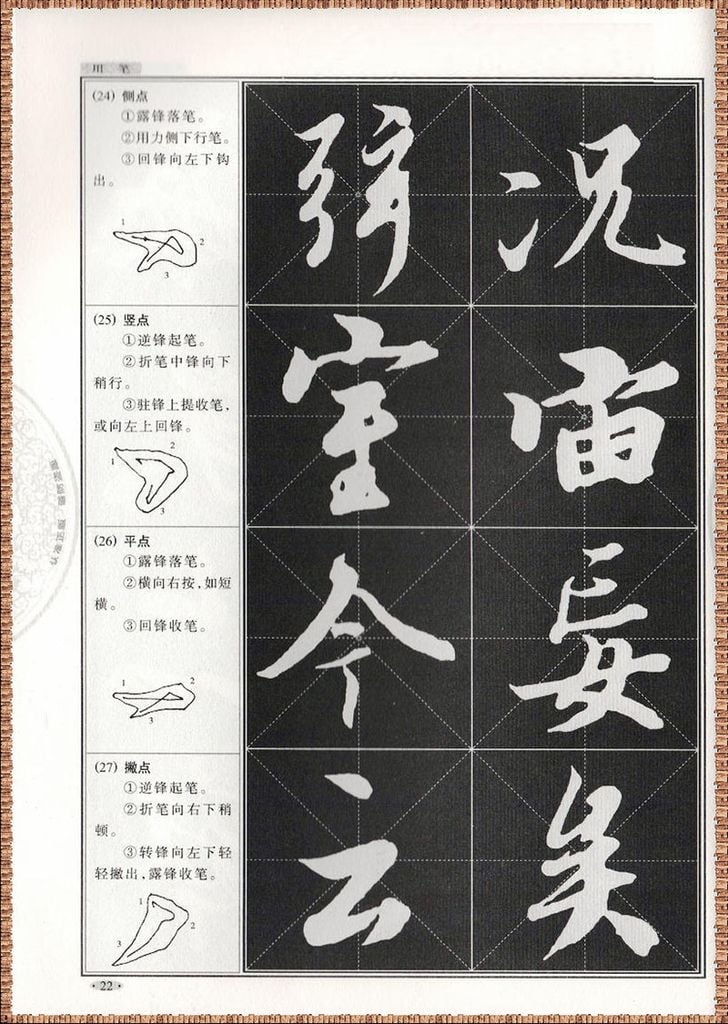 用笔
(24) 侧点
①露锋落笔。
②用力侧下行笔。
③回锋向左下钩
出。
1
2
3
况
(25) 竖点
①逆锋起笔。
②折笔中锋向下
稍行。
③驻锋上提收笔,
或向左上回锋。
1
2
3
室 宙
(26) 平点
①露锋落笔。
②横向右按,如短
横。
③回锋收笔。
1
2
3
今 妄
(27) 撇点
①逆锋起笔。
②折笔向右下稍
顿。
③转锋向左下轻
轻撇出,露锋收笔。
1
2
3
云 矣
·22·